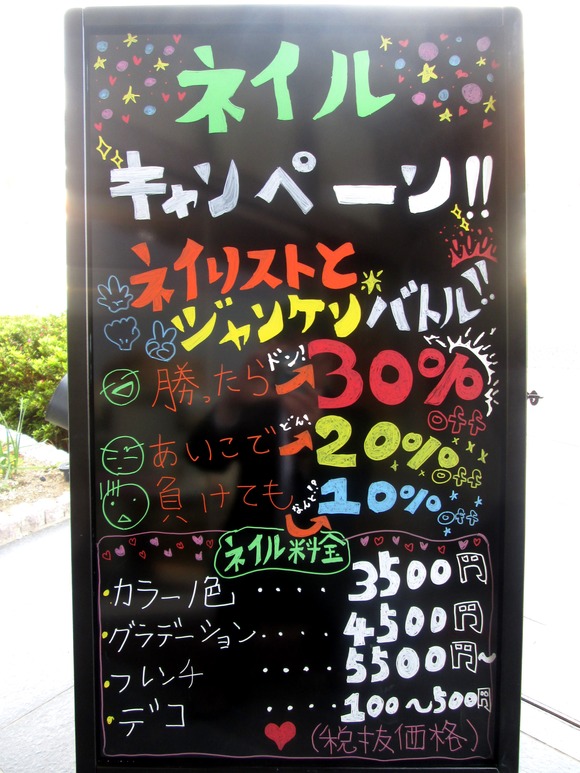 ネイル
キャンペーン!!
ネイリストと
ジャンケンバトル!!
勝ったら ドン! 30% off
あいこで どん! 20% off
負けても なんと!? 10% off
ネイル料金
・カラー1色 ‥‥ 3500円
・グラデーション ‥‥ 4500円
・フレンチ ‥‥ 5500円~
・デコ ‥‥ 100~500円
(税抜価格)